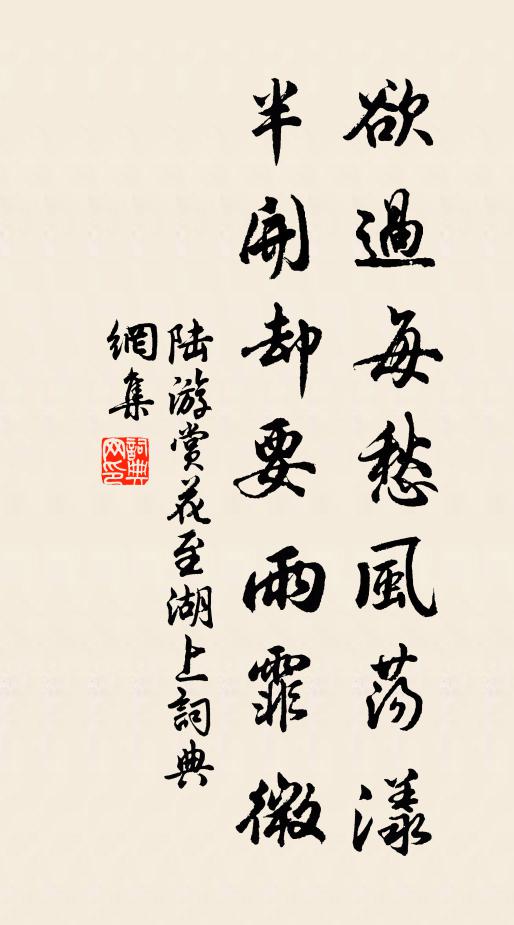 欲過每愁風蕩漾
半開却要雨霏微
陆游賞花至湖上詞典
網集
詞典網印